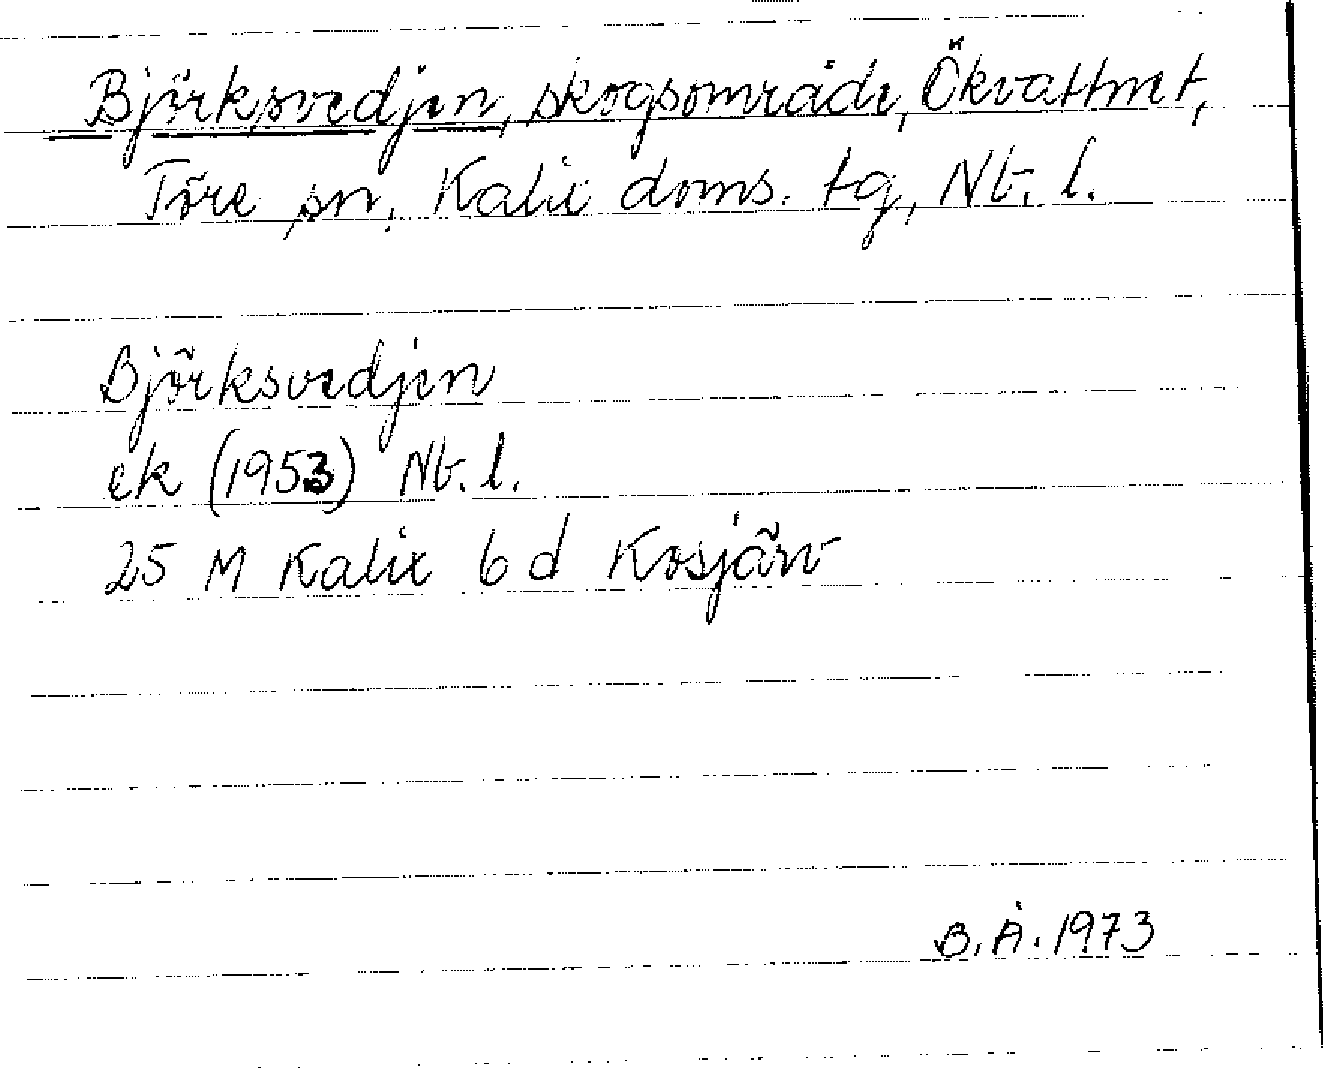 Björksvedjen, skogsområde, Ökvattnet,
Töre sn, Kalix doms. tg, Nb. l.
Björksvedjen
ek (1953) Nb. l.
25 M Kalix 6 d Kosjärv
B. Å. 1973